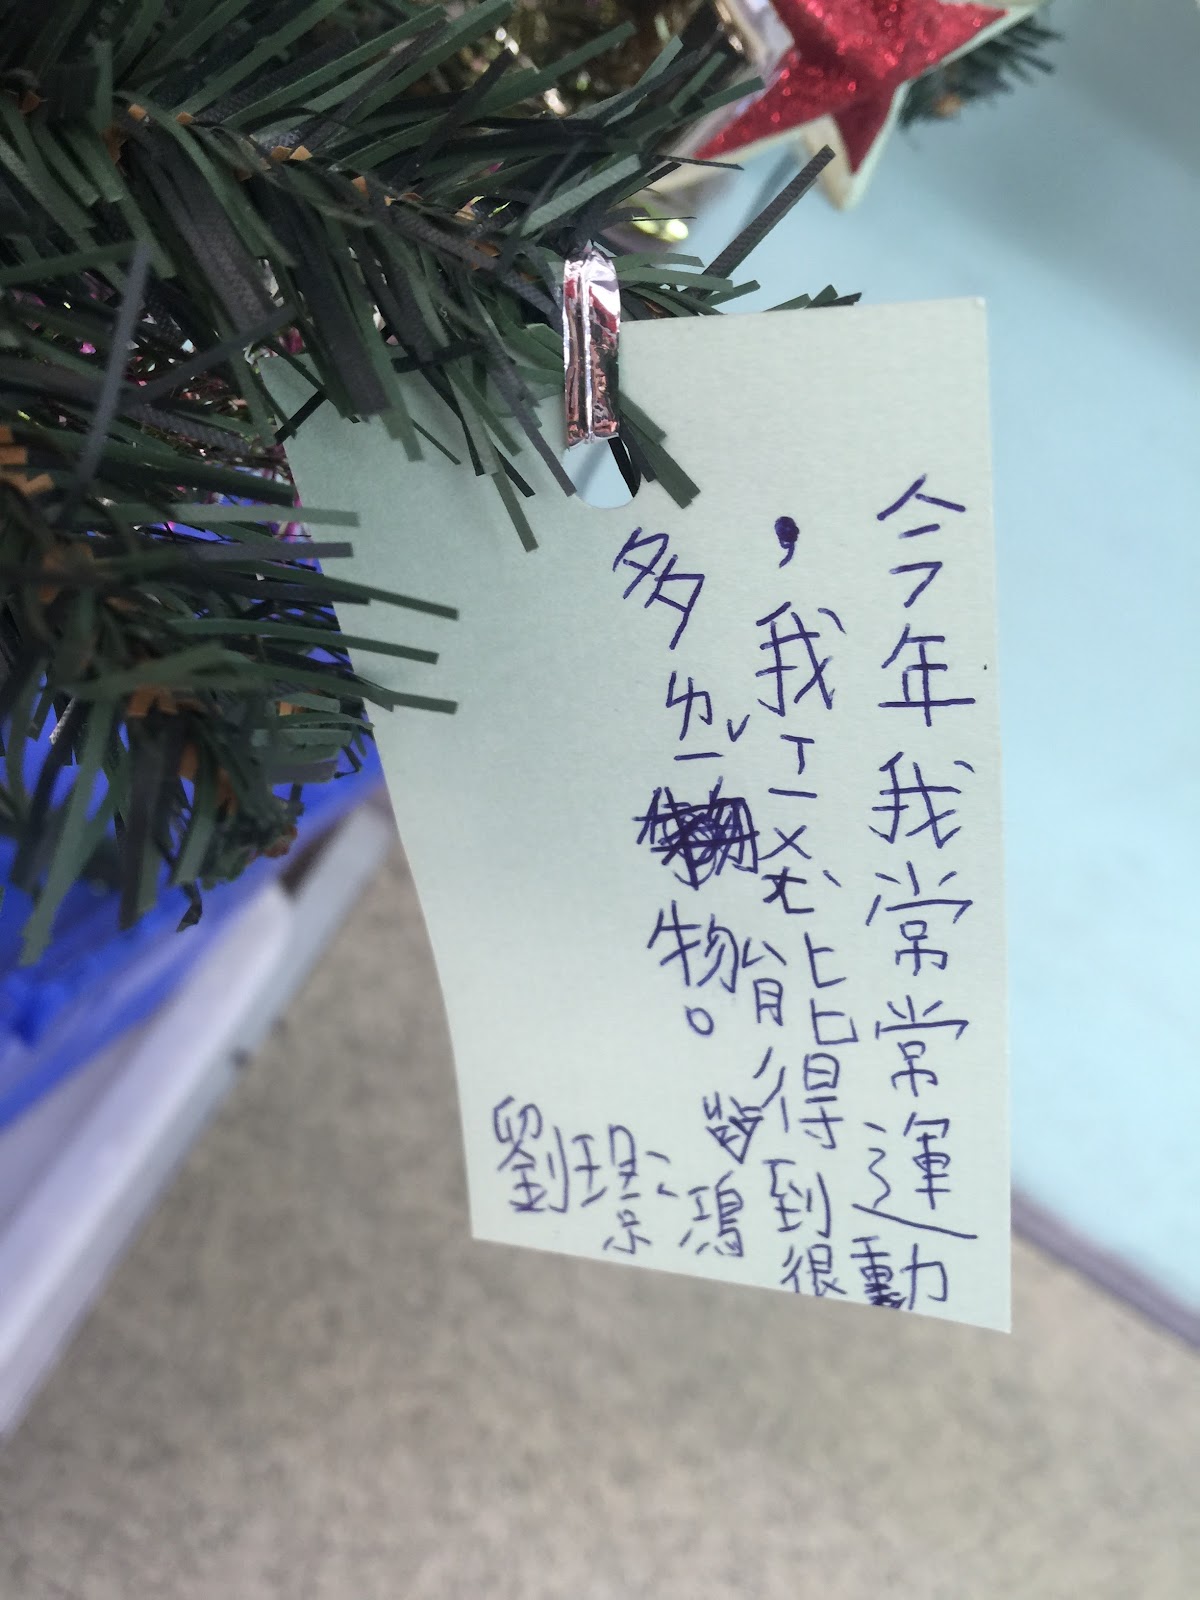 今年我常常運動
，我ㄒㄧㄨㄤˋ能得到很
多ㄌㄧˇ物。
劉璟鴻